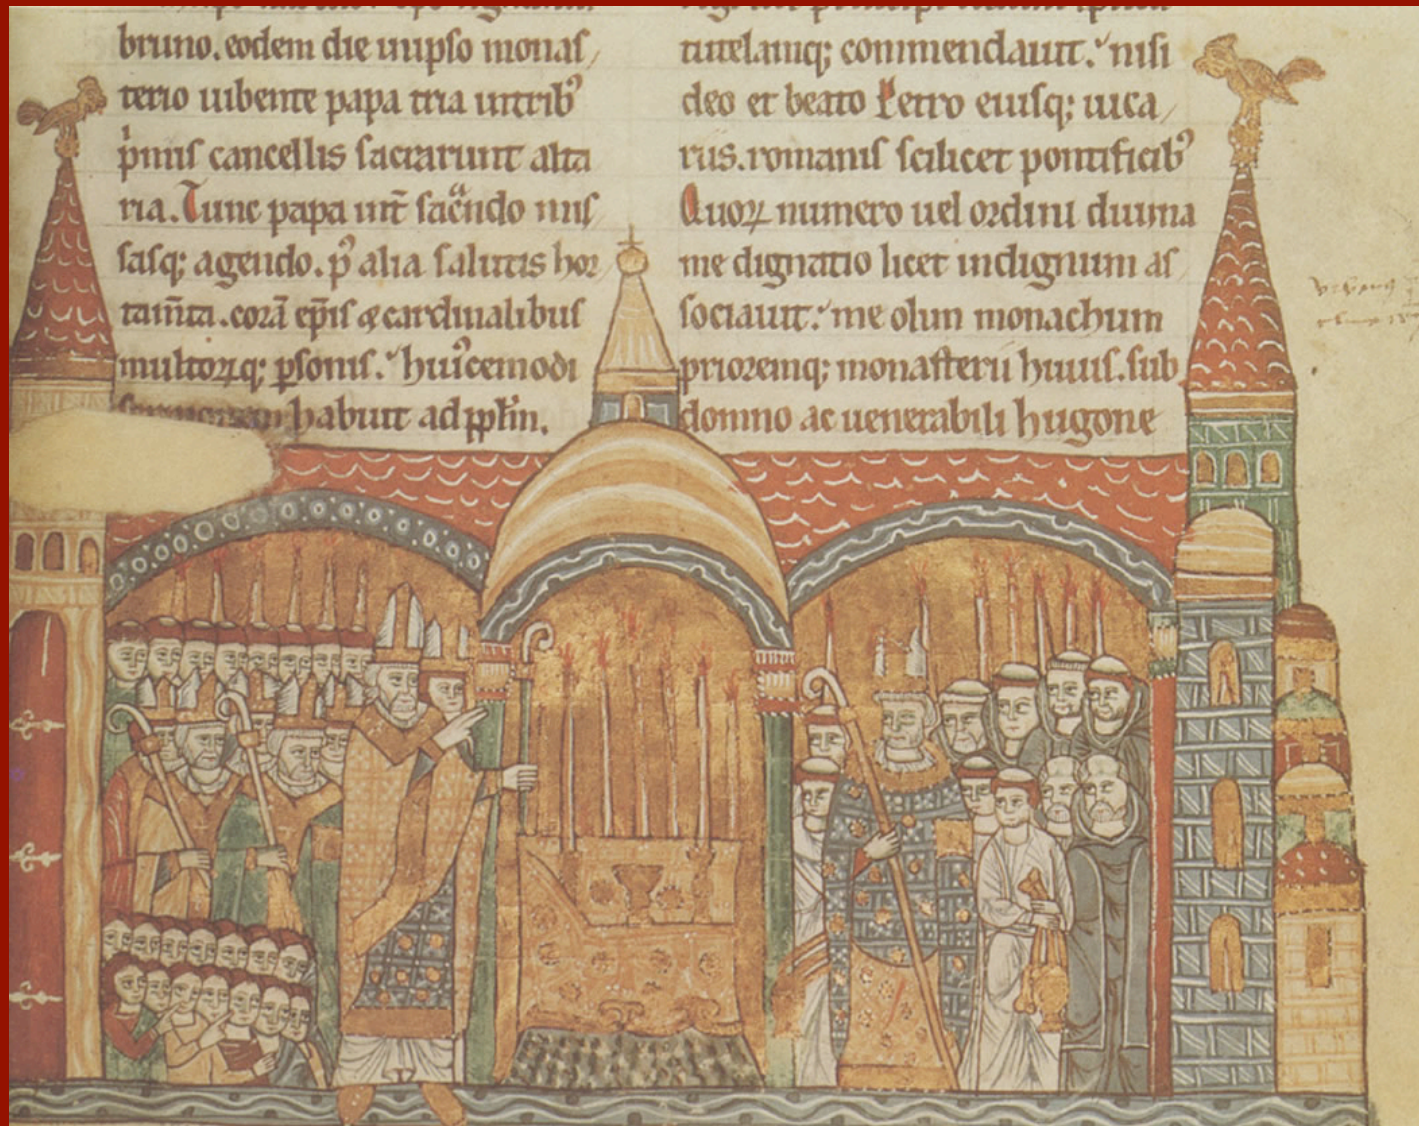 bruno. eodem die inipso monas/
terio iubente papa tria intribꝰ
pͥmis cancellis sacrarunt alta
ria. Tunc papa int̄ sacͣndo mis/
sasq; agendo. pꝰ alia salutis hor/
tam̄ta. corā ep̄is & cardinalibus
multoꝝq; ꝑsonis. huiͨcemodi
habuit ad ppl̄m.
tutelamq; commendauit. nisi
deo et beato Petro eiusq; uica/
riis. romanis scilicet pontificibꝰ
Quoꝝ numero uel ordini diuina
me dignatio licet indignum as/
sociauit. me olim monachum
prioremq; monasterii huius. sub
domno ac uenerabili hugone